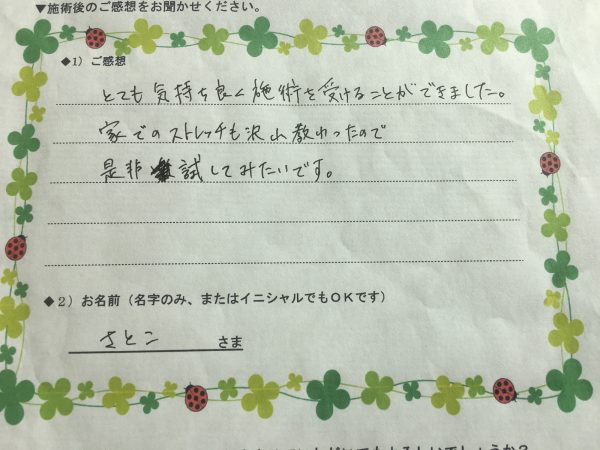 ▼施術後のご感想をお聞かせください。
◆1）ご感想
とても気持ち良く施術を受けることができました。
家でのストレッチも沢山教わったので
是非試してみたいです。
◆2）お名前（名字のみ、またはイニシャルでもＯＫです）
さとこ さま